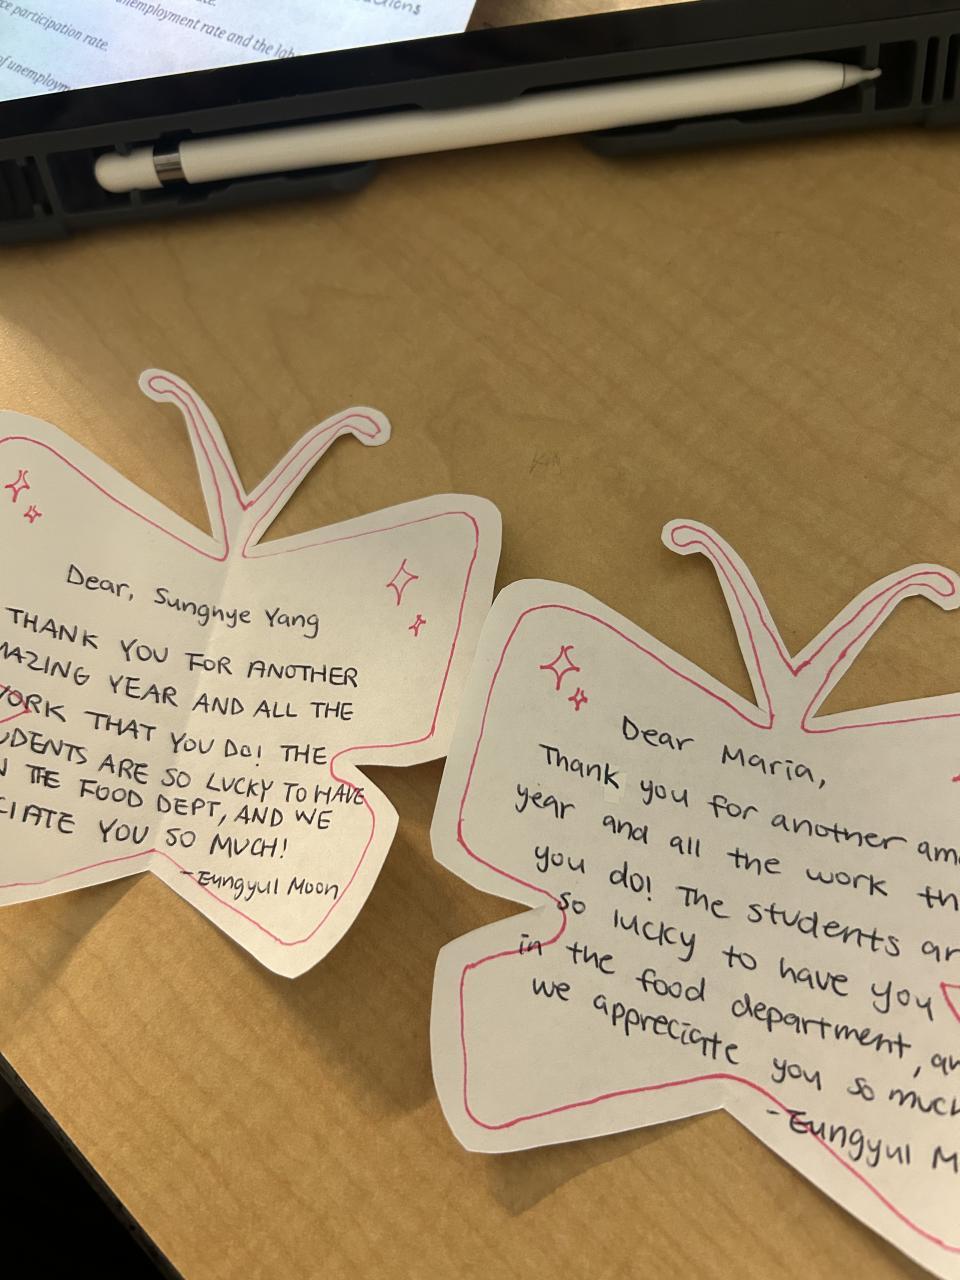 ce participation rate.
unemployment rate and the lab
of unemploym
Dear, Sungnye Yang
THANK YOU FOR ANOTHER
MAZING YEAR AND ALL THE
WORK THAT YOU DO! THE
UDENTS ARE SO LUCKY TO HAVE
N THE FOOD DEPT, AND WE
CIATE YOU SO MUCH!
-Eungyul Moon
Dear Maria,
Thank you for another ama
year and all the work th
you do! The students ar
so lucky to have you
in the food department, an
we appreciate you so much
-Eungyul M